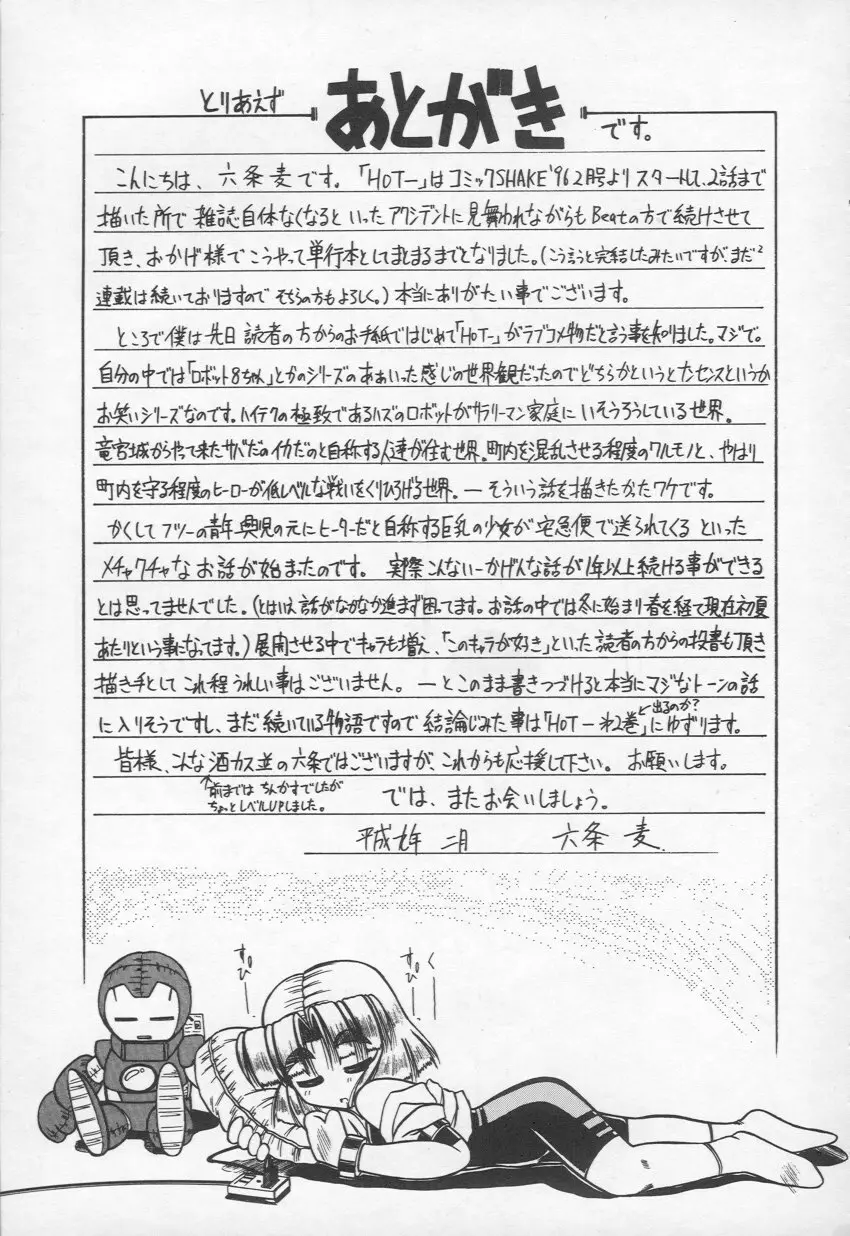 とりあえず
あとがき
です。
こんにちは、六条麦です。「HOTー」はコミックSHAKE'96 2月号よりスタートして、2話まで
描いた所で雑誌自体なくなるといったアクシデントに見舞われながらもBeatの方で続けさせて
頂き、おかげ様でこうやって単行本としてまとまるまでとなりました。(こう言うと完結したみたいですがまだ2
連載は続いておりますのでそちらの方もよろしく。)本当にありがたい事でございます。
ところで僕は先日読者の方からのお手紙ではじめて「HOTー」がラブコメ物だと言う事を知りました。マジで。
自分の中では「ロボット8ちゃん」とかのシリーズのああいった感じの世界観だったのでどちらかというとナンセンスというか
お笑いシリーズなのです。ハイテクの極致であるハズのロボットがサラリーマン家庭にいそうろうしている世界。
竜宮城からやって来たサバだのイカだのと自称する人達が住む世界。町内を混乱させる程度のワルモノと、やはり
町内を守る程度のヒーローが低レベルな戦いをくりひろげる世界。―そういう話を描きたかったワケです。
かくしてフツーの青年興児の元にヒーターだと自称する巨乳の少女が宅急便で送られてくるといった
メチャクチャなお話が始まったのです。実際こんないーかげんな話が1年以上続ける事ができる
とは思ってませんでした。(とはいえ話がなかなか進まず困ってます。お話の中では冬に始まり春を経て現在初夏
あたりという事になってます。)展開させる中でキャラも増え、「このキャラが好き」といった読者の方からの投書も頂き
描き手としてこれ程うれしい事はございません。―とこのまま書きつづけると本当にマジなトーンの話
に入りそうですし、まだ続いている物語ですので結論じみた事は「HOTー 第2巻」にゆずります。
出るのか?
皆様、こんな酒カス並の六条ではございますが、これからも応援して下さい。お願いします。
↑前まではちんかすでしたが
ちょっとレベルUPしました。
では、またお会いしましょう。
平成九年 二月 六条 麦
すぴー
すぴー
く